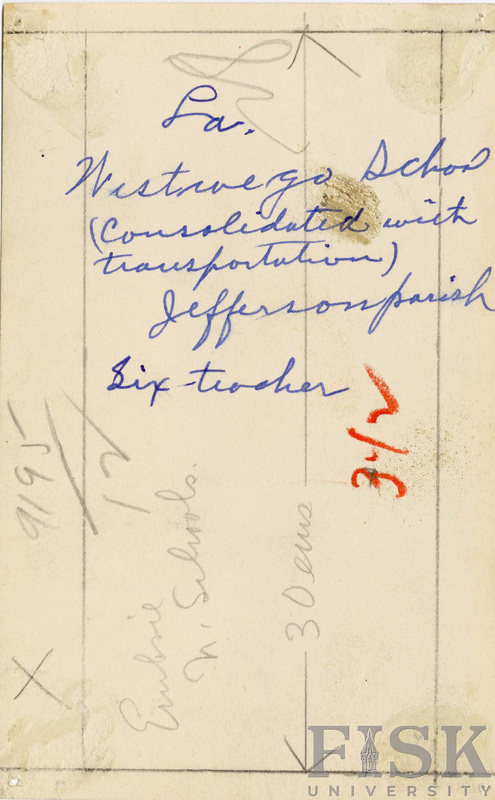 La.
Westwego School
(Consolidated with
transportation)
Jefferson parish
Six-teacher
342
9195
12
Embrie
N. Schools.
30 ems
X
FISK
UNIVERSITY